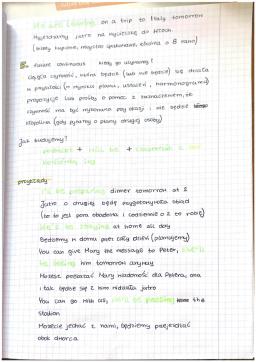 We are leaving on a trip to Italy tomorrow
Wyjeżdżamy jutro na wycieczkę do Włoch
(bilety kupione, wszystko spakowane, zbiórka o 8 rano)
future continuous kiedy go używamy?
ciągła czynność, która będzie (lub nie będzie) się działa
w przyszłości (w wyniku planu, ustaleń, harmonogramu)
propozycje lub prośby o pomoc z zaznaczeniem, że
czynność ma być wykonana przy okazji i nie będzie
kłopotliwa (gdy pytamy o plany drugiej osoby)
Jak budujemy?
+ will be +
końcówką ing
przykłady
I'll be preparing dinner tomorrow at 2
Jutro o drugiej będę przygotowywała obiad
(bo to jest pora obiadowa i codziennie o 2 to robię)
We'll be staying at home all day
Będziemy w domu przez cały dzień (planujemy)
You can give Mary the message to Peter, she'll
be seeing him tomorrow anyway
Możesz przekazać Mary wiadomość dla Petera, ona
i tak będzie się z nim widziała jutro
You can go with us, we'll be passing the
station
Możecie jechać z nami, będziemy przejeżdżać
obok dworca